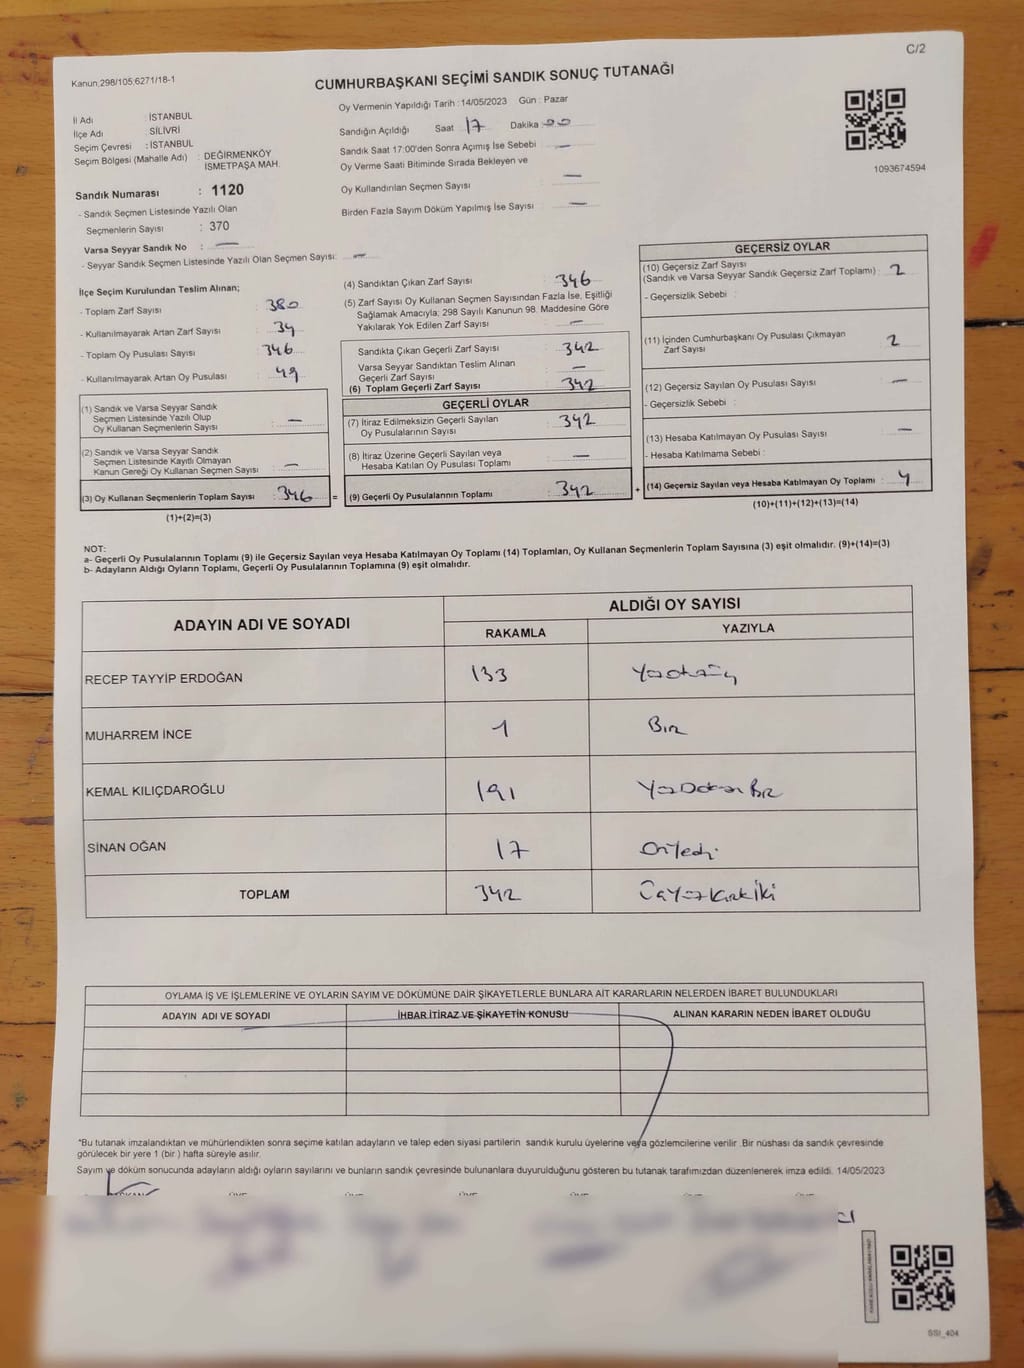 C/2
Kanun,298/105,6271/18-1
CUMHURBAŞKANI SEÇİMİ SANDIK SONUÇ TUTANAĞI
İl Adı : İSTANBUL
İlçe Adı : SİLİVRİ
Seçim Çevresi : İSTANBUL
Seçim Bölgesi (Mahalle Adı) : DEĞİRMENKÖY İSMETPAŞA MAH.
Sandık Numarası : 1120
- Sandık Seçmen Listesinde Yazılı Olan
Seçmenlerin Sayısı : 370
Varsa Seyyar Sandık No : —
- Seyyar Sandık Seçmen Listesinde Yazılı Olan Seçmen Sayısı: —
Oy Vermenin Yapıldığı Tarih : 14/05/2023 Gün : Pazar
Sandığın Açıldığı Saat 17 Dakika 00
Sandık Saat 17:00'den Sonra Açımış İse Sebebi : —
Oy Verme Saati Bitiminde Sırada Bekleyen ve
Oy Kullandırılan Seçmen Sayısı : —
Birden Fazla Sayım Döküm Yapılmış İse Sayısı : —
1093674594
İlçe Seçim Kurulundan Teslim Alınan;
- Toplam Zarf Sayısı : 380
- Kullanılmayarak Artan Zarf Sayısı : 34
- Toplam Oy Pusulası Sayısı : 346
- Kullanılmayarak Artan Oy Pusulası : 49
(1) Sandık ve Varsa Seyyar Sandık
Seçmen Listesinde Yazılı Olup
Oy Kullanan Seçmenlerin Sayısı : —
(2) Sandık ve Varsa Seyyar Sandık
Seçmen Listesinde Kayıtlı Olmayan
Kanun Gereği Oy Kullanan Seçmen Sayısı : —
(3) Oy Kullanan Seçmenlerin Toplam Sayısı : 346 =
(1)+(2)=(3)
(4) Sandıktan Çıkan Zarf Sayısı : 346
(5) Zarf Sayısı Oy Kullanan Seçmen Sayısından Fazla İse, Eşitliği
Sağlamak Amacıyla; 298 Sayılı Kanunun 98. Maddesine Göre
Yakılarak Yok Edilen Zarf Sayısı : —
Sandıkta Çıkan Geçerli Zarf Sayısı : 342
Varsa Seyyar Sandıktan Teslim Alınan
Geçerli Zarf Sayısı : —
(6) Toplam Geçerli Zarf Sayısı : 342
GEÇERLİ OYLAR
(7) İtiraz Edilmeksizin Geçerli Sayılan
Oy Pusulalarının Sayısı : 342
(8) İtiraz Üzerine Geçerli Sayılan veya
Hesaba Katılan Oy Pusulası Toplamı : —
(9) Geçerli Oy Pusulalarının Toplamı : 342 +
GEÇERSİZ OYLAR
(10) Geçersiz Zarf Sayısı
(Sandık ve Varsa Seyyar Sandık Geçersiz Zarf Toplamı) : 2
- Geçersizlik Sebebi :
(11) İçinden Cumhurbaşkanı Oy Pusulası Çıkmayan
Zarf Sayısı : 2
(12) Geçersiz Sayılan Oy Pusulası Sayısı : —
- Geçersizlik Sebebi :
(13) Hesaba Katılmayan Oy Pusulası Sayısı : —
- Hesaba Katılmama Sebebi :
(14) Geçersiz Sayılan veya Hesaba Katılmayan Oy Toplamı : 4
(10)+(11)+(12)+(13)=(14)
NOT:
a- Geçerli Oy Pusulalarının Toplamı (9) ile Geçersiz Sayılan veya Hesaba Katılmayan Oy Toplamı (14) Toplamları, Oy Kullanan Seçmenlerin Toplam Sayısına (3) eşit olmalıdır. (9)+(14)=(3)
b- Adayların Aldığı Oyların Toplamı, Geçerli Oy Pusulalarının Toplamına (9) eşit olmalıdır.
ADAYIN ADI VE SOYADI
ALDIĞI OY SAYISI
RAKAMLA YAZIYLA
RECEP TAYYİP ERDOĞAN 133
MUHARREM İNCE 1 Bir
KEMAL KILIÇDAROĞLU 191 Yüz Doksan Bir
SİNAN OĞAN 17 Onyedi
TOPLAM 342 Üçyüz Kırk İki
OYLAMA İŞ VE İŞLEMLERİNE VE OYLARIN SAYIM VE DÖKÜMÜNE DAİR ŞİKAYETLERLE BUNLARA AİT KARARLARIN NELERDEN İBARET BULUNDUKLARI
ADAYIN ADI VE SOYADI İHBAR İTİRAZ VE ŞİKAYETİN KONUSU ALINAN KARARIN NEDEN İBARET OLDUĞU
*Bu tutanak imzalandıktan ve mühürlendikten sonra seçime katılan adayların ve talep eden siyasi partilerin sandık kurulu üyelerine veya gözlemcilerine verilir .Bir nüshası da sandık çevresinde
görülecek bir yere 1 (bir ) hafta süreyle asılır.
Sayım ve döküm sonucunda adayların aldığı oyların sayılarını ve bunların sandık çevresinde bulunanlara duyurulduğunu gösteren bu tutanak tarafımızdan düzenlenerek imza edildi. 14/05/2023
SSI_404